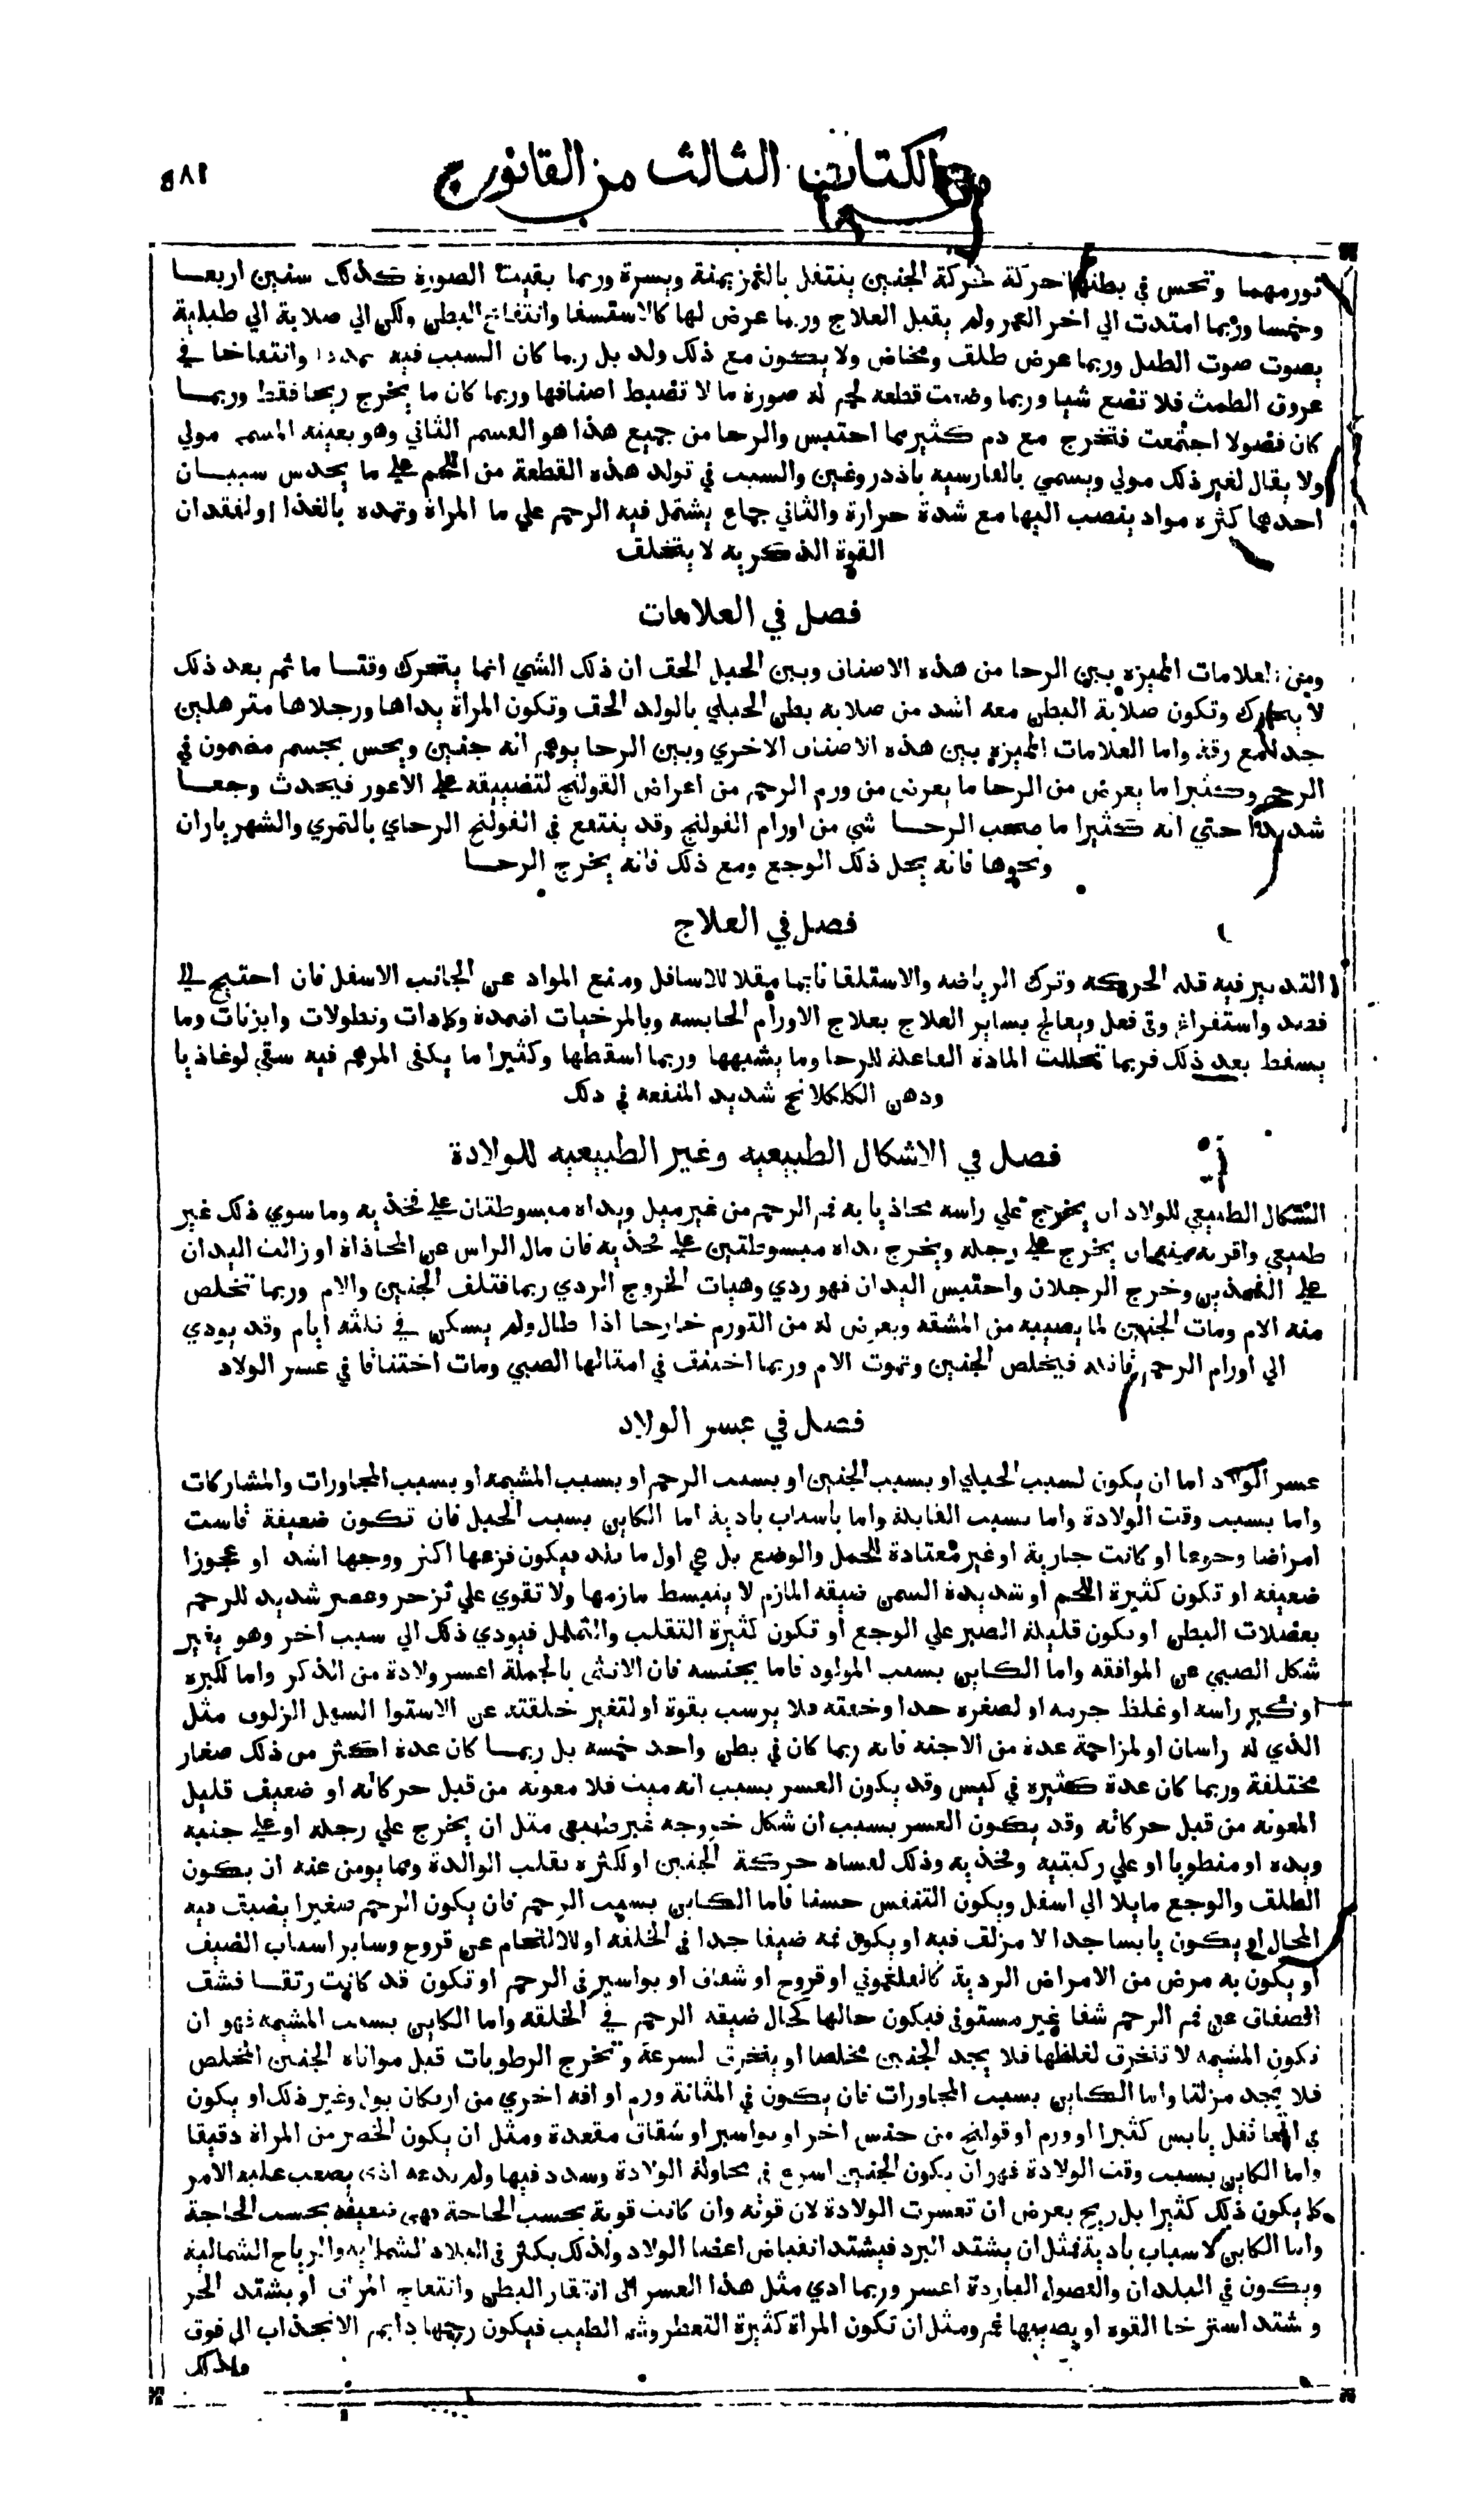 الكتاب الثالث من القانون
٥٨١
تورمهما وتحس في بطنها حركة كحركة الجنين ينتقل بالغمز يمنة ويسرة وربما بقيت الصورة كذلك سنين اربعا
وخمسا وربما امتدت الي اخر العمر ولم يقبل العلاج وربما عرض لها كالاستسقا وانتفاخ البطن ولكن الي صلابة الي طبلية
يصوت صوت الطبل وربما عرض طلق ومخاض ولا يكون مع ذلك ولد بل ربما كان السبب فيه تمددا وانتفاخا في
عروق الطمث فلا تضع شيا وربما وضعت قطعه لحم له صورة ما لا تضبط اصنافها وربما كان ما يخرج ريحا فقط وربما
كان فضولا اجتمعت فتخرج مع دم كثير مما احتبس والرحا من جميع هذا هو القسم الثاني وهو بعينه المسمي مولي
ولا يقال لغير ذلك مولي ويسمي بالفارسيه باذدروغين والسبب في تولد هذه القطعة من اللحم علي ما يحدس سببان
احدهما كثره مواد ينصب اليها مع شدة حرارة والثاني جماع يشتمل فيه الرحم علي ما المراة وتمده بالغذا او لفقدان
القوة الذكريه لا يتخلق
فصل في العلامات
ومن العلامات المميزه بين الرحا من هذه الاصناف وبين الحبل الحق ان ذلك الشي انما يتحرك وقتا ما ثم بعد ذلك
لا يتحرك وتكون صلابة البطن معه اشد من صلابه بطن الحبلي بالولد الحق وتكون المراة يداها ورجلاها مترهلين
جدا مع رقة واما العلامات المميزه بين هذه الاصناف الاخري وبين الرحا يوهم انه جنين ويحس بجسم مضمون في
الرحم وكثيرا ما يعرض من الرحا ما يعرض من ورم الرحم من اعراض القولنج لتضييقه علي الاعور فيحدث وجعا
شديدا حتي انه كثيرا ما صحب الرحا شي من اورام القولنج وقد ينتفع في القولنج الرحاي بالتمري والشهرياران
ونحوها فانه يحل ذلك الوجع ومع ذلك فانه يخرج الرحا
فصل في العلاج
التدبير فيه قله الحركه وترك الرياضه والاستلقا نايما مقلا للاسافل ومنع المواد عن الجانب الاسفل فان احتيج الي
فصد واستفراغ وقي فعل ويعالج بساير العلاج بعلاج الاورام الحابسه وبالمرخيات اضمدة وكمادات ونطولات وابزنات وما
يسقط بعد ذلك فربما تحللت المادة الفاعلة للرحا وما يشبهها وربما اسقطها وكثيرا ما يكفى المرهم فيه سقي لوغاذيا
ودهن الكلكلانج شديد المنفعه في ذلك
فصل في الاشكال الطبيعيه وغير الطبيعيه للولادة
الشكال الطبيعي للولاد ان يخرج علي راسه محاذيا به فم الرحم من غير ميل ويداه مبسوطتان علي فخذيه وما سوي ذلك غير
طبيعي واقربه منه ان يخرج علي رجله ويخرج يداه مبسوطتين علي فخذيه فان مال الراس عن المحاذاة او زالت اليدان
علي الفخذين وخرج الرجلان واحتبس اليدان فهو ردي وهيات الخروج الردي ربما قتلف الجنين والام وربما تخلص
منه الام ومات الجنين لما يصيبه من المشقه ويعرض له من التورم خارجا اذا طال ولم يسكن في ثلثه ايام وقد يودي
الي اورام الرحم فيخلص الجنين وتموت الام وربما اختنق في امثالها الصبي ومات اختناقا في عسر الولاد
فصل في عسر الولاد
عسر الولاد اما ان يكون لسبب الحبلي او بسبب الجنين او بسبب الرحم او بسبب المشيمه او بسبب المجاورات والمشاركات
واما بسبب وقت الولادة واما بسبب القابلة واما باسباب بادية اما الكاين بسبب الحبل فان تكون ضعيفة قاست
امراضا وجوعا او كانت جارية او غير معتادة للحمل والوضع بل هي اول ما تلد فيكون فزعها اكثر ووجعها اشد او عجوزا
ضعيفه او تكون كثيرة اللحم او شديدة السمن ضيقه المازم لا ينبسط مازمها ولا تقوي علي تزحر وعصر شديد للرحم
بعضلات البطن او يكون قليلة الصبر علي الوجع او تكون كثيرة التقلب والتململ فيودي ذلك الي سبب اخر وهو يغير
شكل الصبي عن الموافقه واما الكاين بسبب المولود فاما بجنسه فان الانثي بالجملة اعسر ولادة من الذكر واما لكبره
او كبر راسه او غلظ جرمه او لصغره جدا وخفته فلا يرسب بقوة او لتغير خلقته عن الاستوا السهل الزلوق مثل
الذي له راسان او لمزاحمة عدة من الاجنه فانه ربما كان في بطن واحد خمسه بل ربما كان عدة اكثر من ذلك صغار
مختلفة وربما كان عدة كثيره في كيس وقد يكون العسر بسبب انه ميت فلا معونه من قبل حركاته او ضعيف قليل
المعونه من قبل حركاته وقد يكون العسر بسبب ان شكل خروجه غير طبيعي مثل ان يخرج علي رجله او علي جنبه
ويده او منطويا او علي ركبتيه وفخذيه وذلك لفساد حركة الجنين او لكثره تقلب الوالدة ومما يومن عنه ان يكون
الطلق والوجع مايلا الي اسفل ويكون التنفس حسنا فاما الكاين بسبب الرحم فان يكون الرحم صغيرا يضيق فيه
المجال او يكون يابسا جدا لا مزلق فيه او يكون فمه ضيقا جدا في الخلقه او للالتحام عن قروح وساير اسباب الضيق
او يكون به مرض من الامراض الردية كالفلغموني او قروح او شقاق او بواسير في الرحم او تكون قد كانت رتقا فشق
الصفاق عن فم الرحم شقا غير مستوفي فيكون حالها كحال ضيقه الرحم في الخلقه واما الكاين بسبب المشيمه فهو ان
تكون المشيمه لا تنخرق لغلظها فلا يجد الجنين مخلصا او ينخرق لسرعة وتخرج الرطوبات قبل مواتاة الجنين المخلص
فلا يجد مزلقا واما الكاين بسبب المجاورات فان يكون في المثانة ورم او افه اخري من ارتكان بول وغير ذلك او يكون
في المعا ثفل يابس كثيرا او ورم او قولنج من جنس اخر او بواسير او شقاق مقعدة ومثل ان يكون الخصر من المراة دقيقا
واما الكاين بسبب وقت الولادة فهو ان يكون الجنين اسرع في محاولة الولادة وسدد فيها ولم يصعب عليه الامر
كما يكون ذلك كثيرا بل ريح يعرض ان تعسرت الولادة لان قوته وان كانت قوية بحسب الحاجة فهي ضعيفه بحسب الحاجة
واما الكاين لاسباب بادية فمثل ان يشتد البرد فيشتد انقباض اعضا الولاد ولذلك يكثر في البلاد الشماليه والرياح الشمالية
ويكون في البلدان والفصول الباردة اعسر وربما ادي مثل هذا العسر الي انتقار البطن وانتفاج المراق او يشتد الحر
وشتد استرخا القوه او يصيبها غم ومثل ان تكون المراة كثيرة التعطر وشم الطيب فيكون رحمها دايم الانجذاب الي فوق
ولذلك